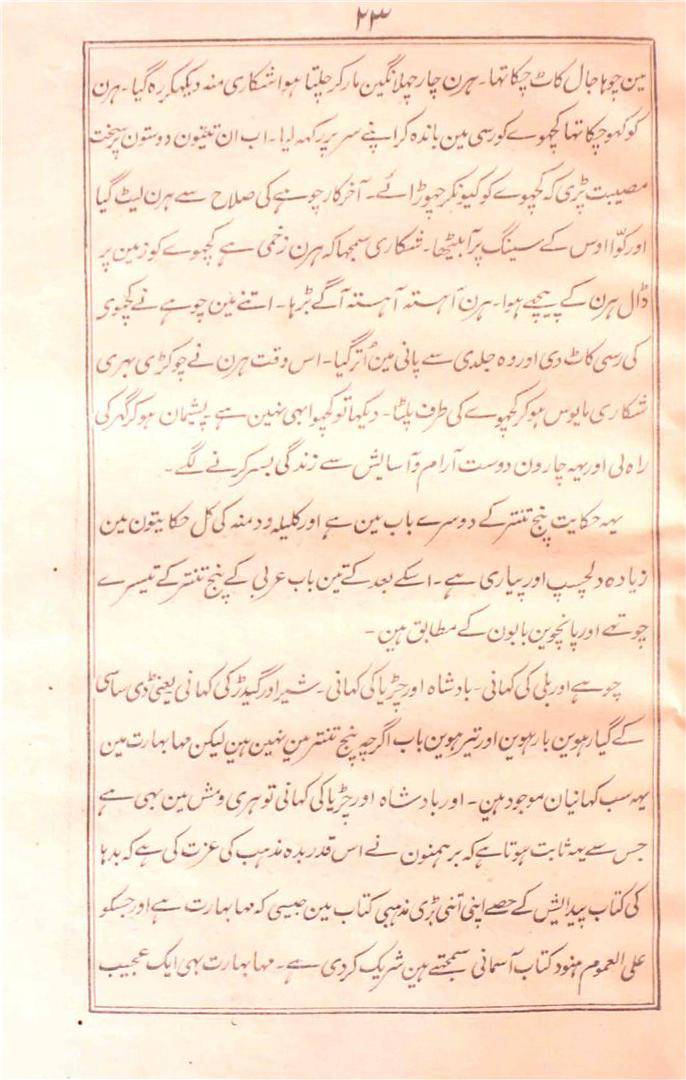 ۲۳
مین چوہا جال کاٹ چکا تہا۔ ہرن چار چہلانگین مار کر چلتا ہوا شکاری منہ دیکہکر رہ گیا۔ ہرن
کو کہو چکا تہا کچہوے کو رسی مین باندہ کر اپنے سر پر رکہہ لیا۔ اب ان تینون دوستون پر سخت
مصیبت پڑی کہ کچہوے کو کیونکر چہوڑائے۔ آخر کار چوہے کی صلاح سے ہرن لیٹ گیا
اور کوّا اوس کے سینگ پر آ بیٹھا۔ شکاری سمجہا کہ ہرن زخمی ہے کچہوے کو زمین پر
ڈال ہرن کے پیچہے ہوا۔ ہرن آہستہ آہستہ آگے بڑہا۔ اتنے مین چوہے نے کچہوی
کی رسی کاٹ دی اور وہ جلدی سے پانی مین اُتر گیا۔ اس وقت ہرن نے چوکڑی بہری
شکاری مایوس ہو کر کچہوے کی طرف پلٹا۔ دیکہا تو کچہوا بہی نہین ہے پشیمان ہو کر گہر کی
راہ لی اور یہہ چارون دوست آرام و آسایش سے زندگی بسر کرنے لگے۔
یہہ حکایت پنج تنتر کے دوسرے باب مین ہے اور کلیلہ و دمنہ کی کل حکایتون مین
زیادہ دلچسپ اور پیاری ہے۔ اسکے بعد کے تین باب عربی کے پنج تنتر کے تیسرے
چوتہے اور پانچوین بابون کے مطابق ہین۔
چوہے اور بلی کی کہانی۔ بادشاہ اور چڑیا کی کہانی۔ شیر اور گیدڑ کی کہانی یعنی ڈی ساسی
کے گیارہوین بارہوین اور تیرہوین باب اگرچہ پنج تنتر مین نہین ہین لیکن مہا بہارت مین
یہہ سب کہانیان موجود ہین۔ اور بادشاہ اور چڑیا کی کہانی تو ہری ومش مین بہی ہے
جس سے یہہ ثابت ہوتا ہے کہ برہمنون نے اس قدر بدہ مذہب کی عزت کی ہے کہ بدہا
کی کتاب پیدایش کے حصے اپنی اتنی بڑی مذہبی کتاب مین جیسی کہ مہا بہارت ہے اور جسکو
علی العموم ہنود کتاب آسمانی سمجہتے ہین شریک کر دی ہے۔ مہا بہارت بہی ایک عجیب